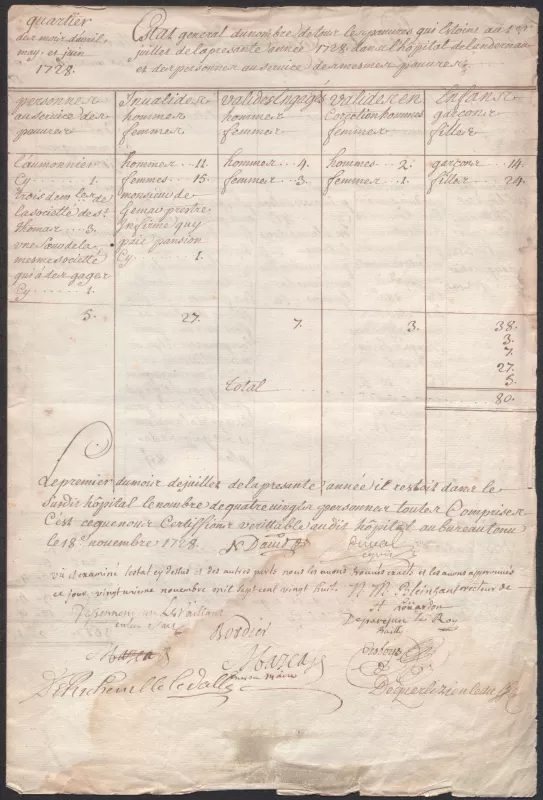 quartier
des mois davril,
may, et juin
1728.
Etat general du nombre de tous les pauvres qui estoins au 1er
juillet de la presante année 1728 dans l'hôpital de landernau
et des personnes au service desmesmes pauvres.
personnes
au service des
pauvres
Invalides
hommes
femmes
valides Engagés
hommes
femmes
valides en
Corection hommes
femmes
Enfans
garçons
filles
L'aumonnier
Cy . . . . 1.
trois dem.les de
la societte de St.
thomas . . 3.
une sœur de la
mesme societte
qui a des gages
Cy . . . 1.
hommes . . 11.
femmes . . 15.
monsieur de
prestre
Infirme quy
paie pansion
Cy . . . . 1.
hommes . . . 4.
femmes . . . 3.
hommes . . . 2.
femmes . . . 1.
garçons . . . 14.
filles . . . 24.
5. 27. 7. 3. 38.
3.
7.
27.
5.
total 80.
Le premier du mois de juillet de la presante année il restoit dans le
susdit hôpital le nombre de quatre vingts personnes toutes Comprises
C'est ce que nous Certiffions veritable audit hôpital au bureau tenu
le 18e novembre 1728.
vu et examiné lestat cy dessus et des autres parts nous les avons trouvés exacts et les avons approuvés
ce jour vingt unieme novembre mil sept cent vingt huit.
recteur de
Le Roy
Bordier
Mazeas
Mazeas